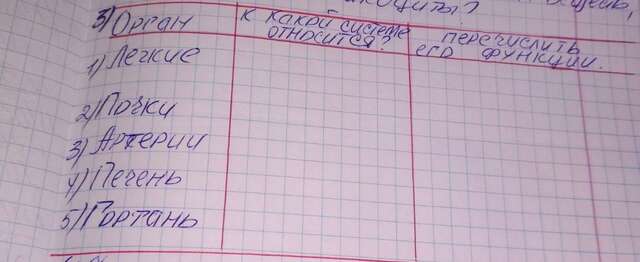 3) Орган
к какой системе
относится?
перечислить
его функции.
1) Легкие
2) Почки
3) Артерии
4) Печень
5) Гортань